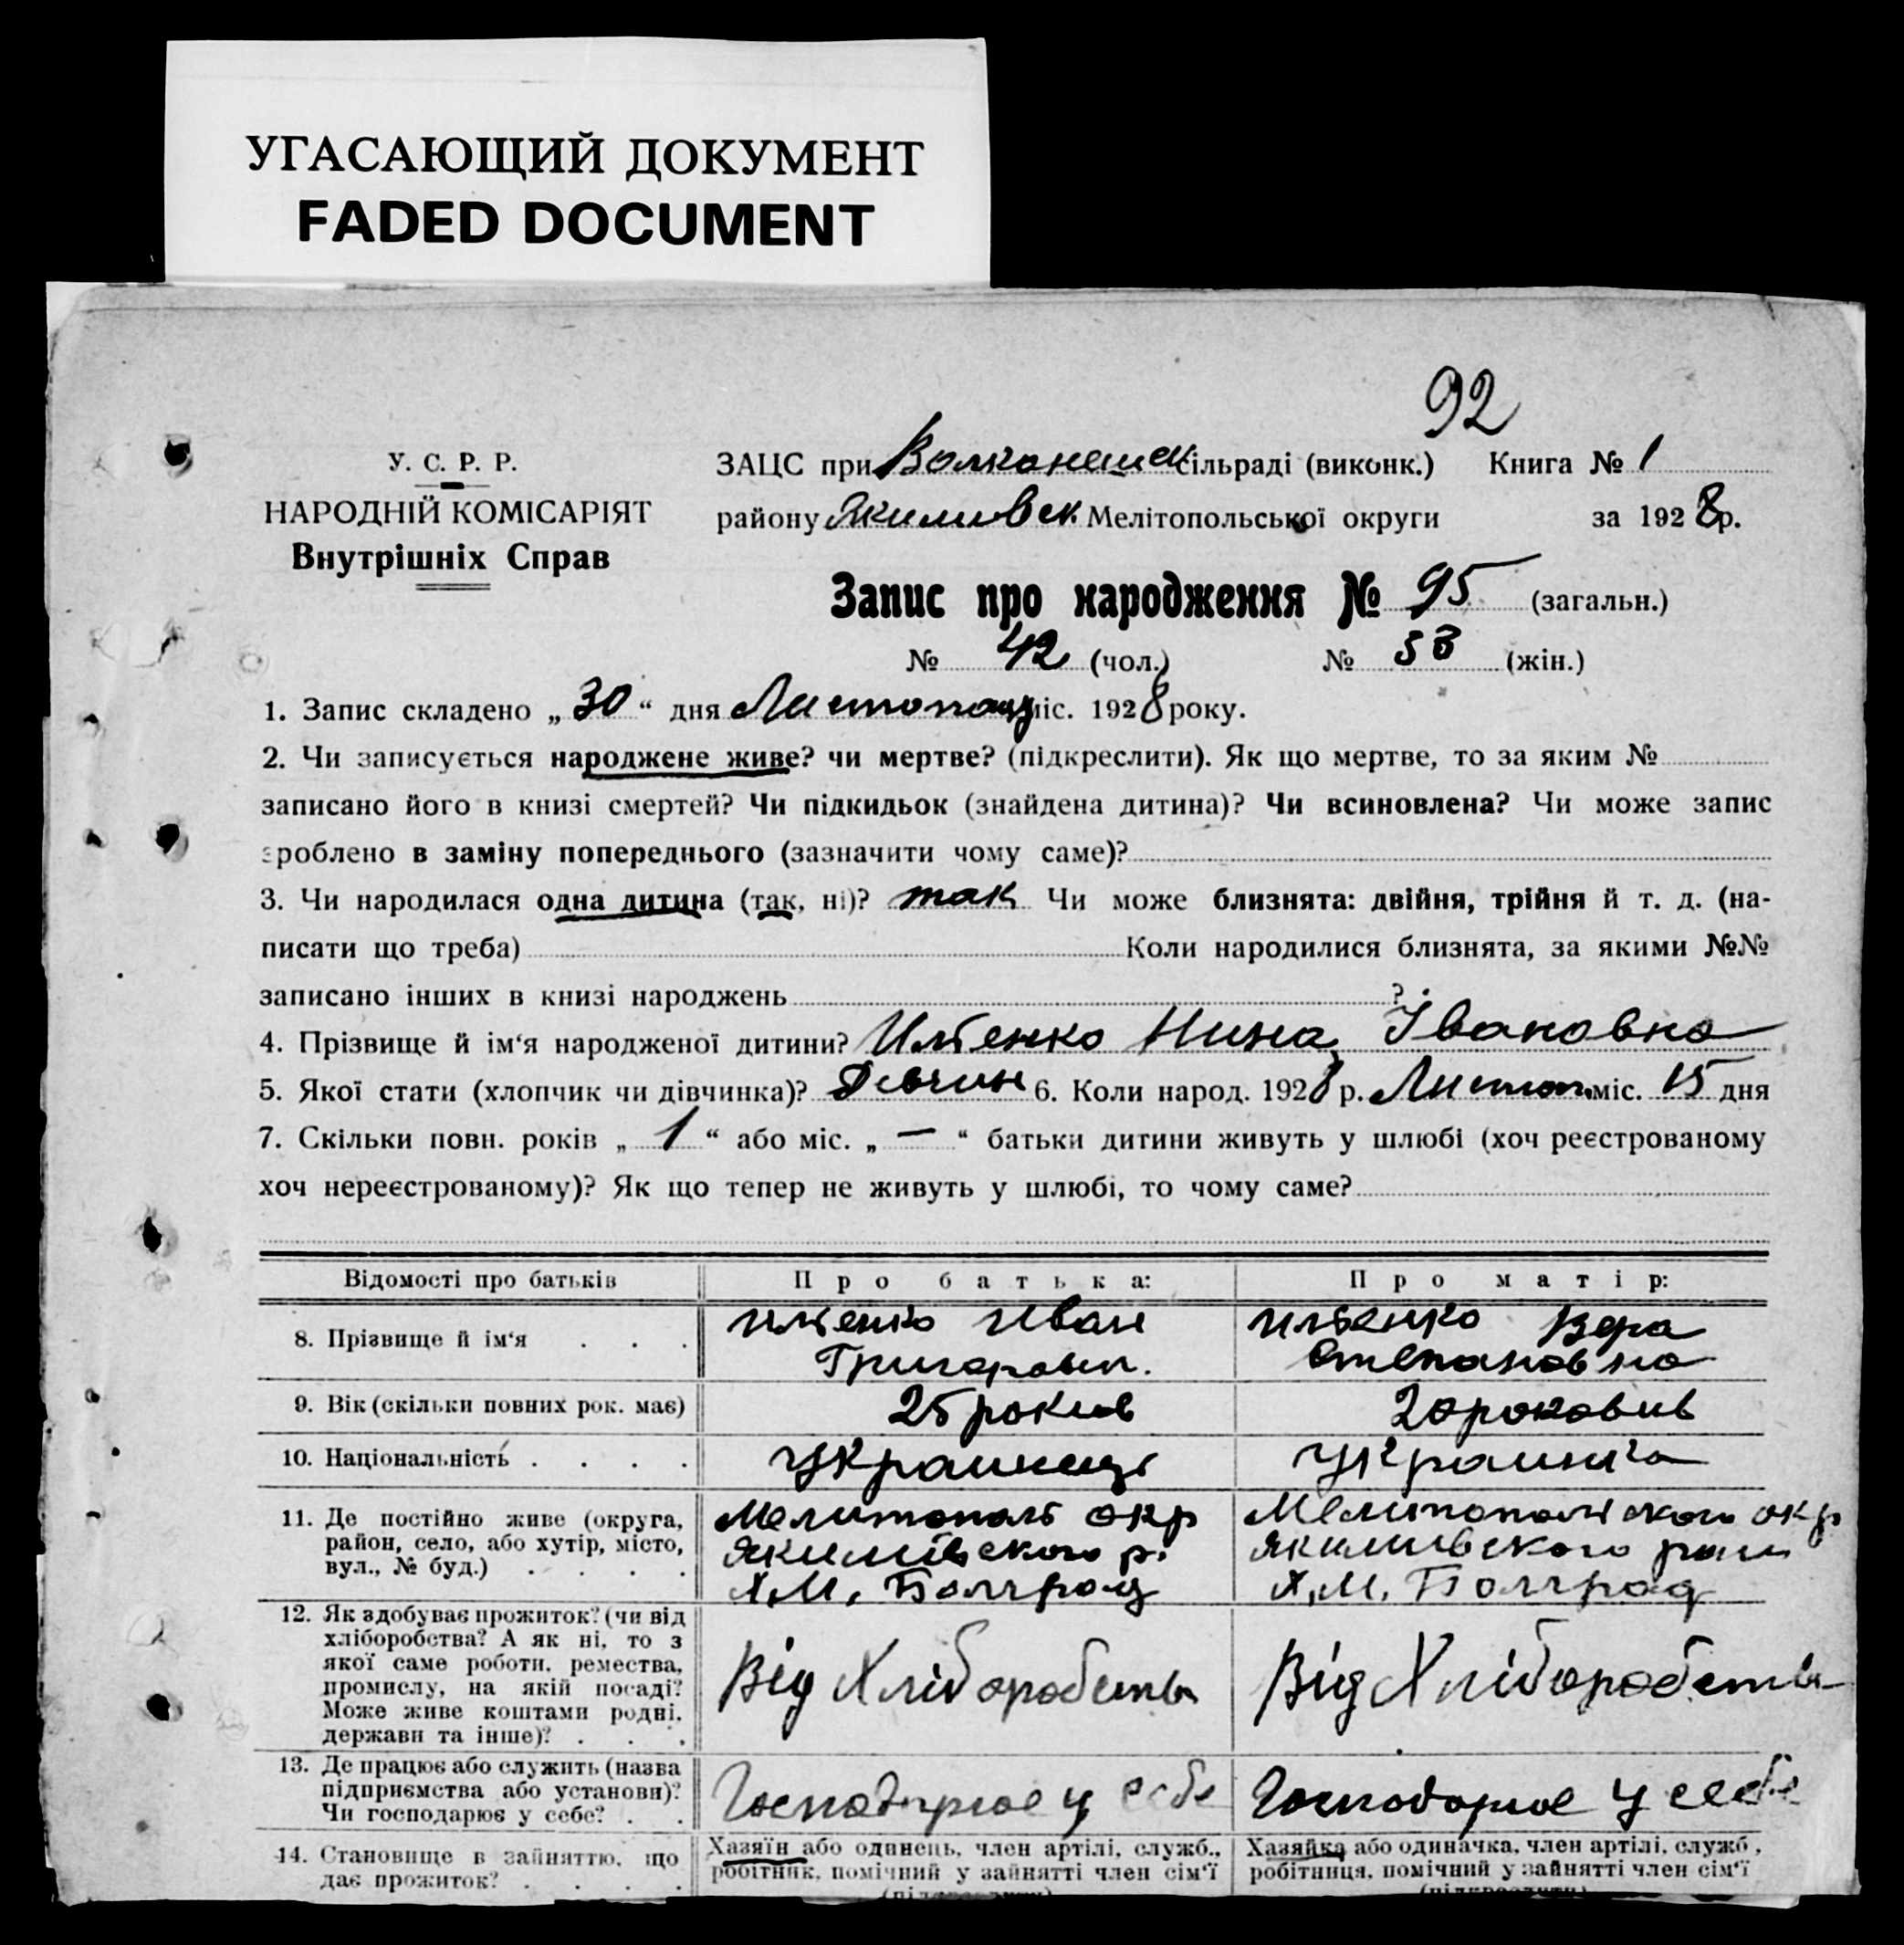 УГАСАЮЩИЙ ДОКУМЕНТ
FADED DOCUMENT
92
У. С. Р. Р.
НАРОДНІЙ КОМІСАРІЯТ
Внутрішніх Справ
ЗАЦС при Волканешск сільраді (виконк.) Книга № 1
району Якимивск. Мелітопольської округи за 1928р.
Запис про народження № 95 (загальн.)
№ 42 (чол.) № 53 (жін.)
1. Запис складено „ 30 “ дня Листопад міс. 1928 року.
2. Чи записується народжене живе? чи мертве? (підкреслити). Як що мертве, то за яким №
записано його в книзі смертей? Чи підкидьок (знайдена дитина)? Чи всиновлена? Чи може запис
зроблено в заміну попереднього (зазначити чому саме)?
3. Чи народилася одна дитина (так, ні)? так Чи може близнята: двійня, трійня й т. д. (на-
писати що треба) Коли народилися близнята, за якими №№
записано інших в книзі народжень ?
4. Прізвище й ім‘я народженої дитини? Ильенко Нина Івановна
5. Якої стати (хлопчик чи дівчинка)? Девчин 6. Коли народ. 1928 р. Листоп. міс. 15 дня
7. Скільки повн. років „ 1 “ або міс. „ — “ батьки дитини живуть у шлюбі (хоч реєстрованому
хоч нереєстрованому)? Як що тепер не живуть у шлюбі, то чому саме?
Відомості про батьків Про батька: Про матір:
8. Прізвище й ім‘я . . .
Ильенко Иван
Григорович.
Ильенко Вера
Степановна
9. Вік (скільки повних рок. має)
25 рокив
20 роковив
10. Національність . . . .
Украинець
Украинка
11. Де постійно живе (округа,
район, село, або хутір, місто,
вул., № буд.) . . . .
Мелитополь окр
Якимівского р.
Х. М. Болград
Мелитопольского окр
Якимивского раи
Х. М. Болград
12. Як здобуває прожиток? (чи від
хліборобства? А як ні, то з
якої саме роботи, ремества,
промислу, на якій посаді?
Може живе коштами родні,
держави та інше)? . . .
Від Хліборобства
Від Хліборобства
13. Де працює або служить (назва
підприємства або установи)?
Чи господарює у себе? . .
Господарює у себе
Господарює у себе
14. Становище в зайняттю, що
дає прожиток? . . . .
Хазяїн або одинець, член артілі, служб.,
робітник, помічний у зайнятті член сім‘ї
(підкреслити)
Хазяйка або одиначка, член артілі, служб.,
робітниця, помічний у зайнятті член сім‘ї
(підкреслити)